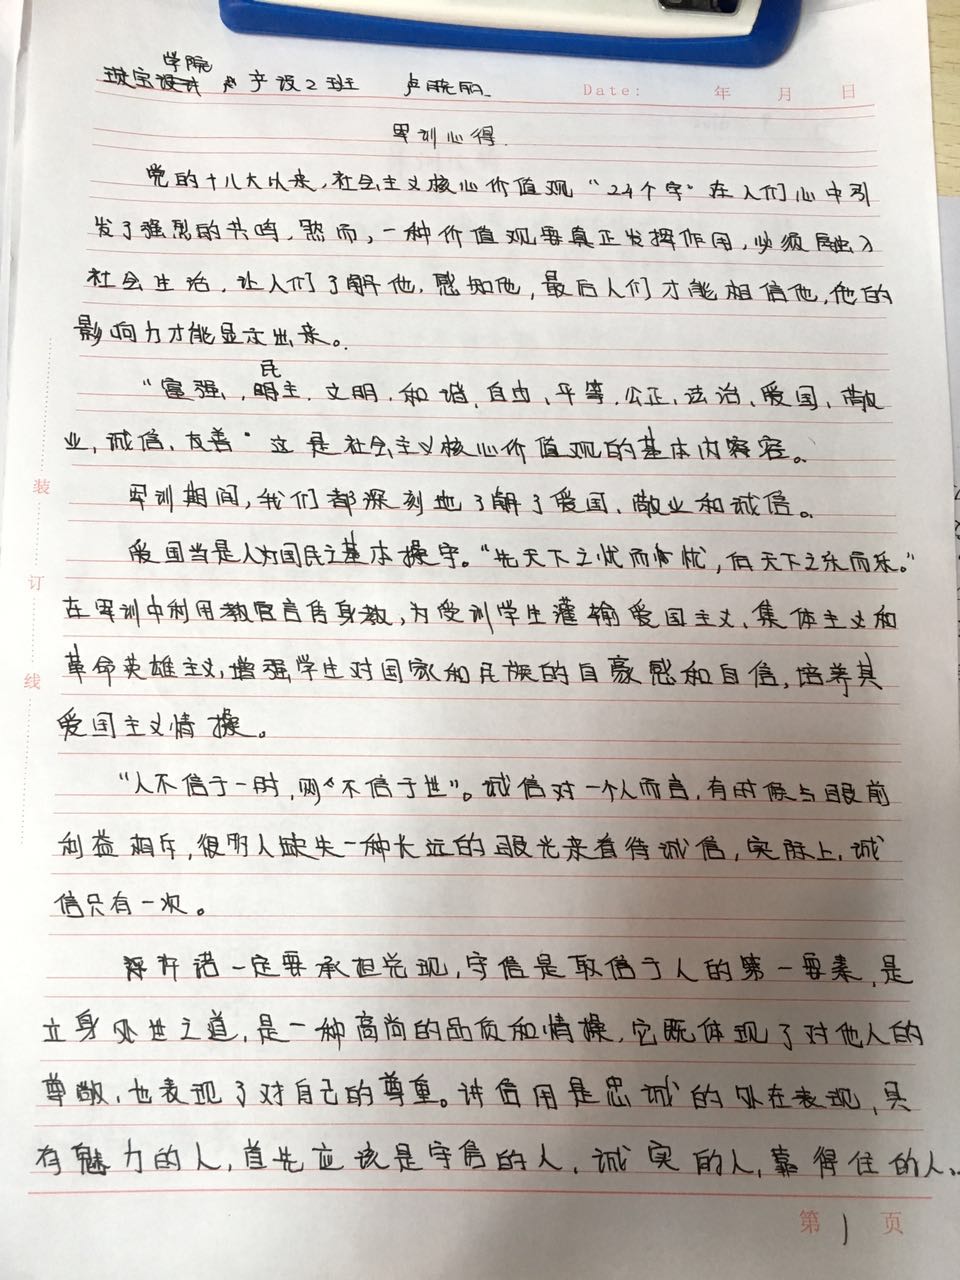 学院
珠宝设计 产设2班 卢晓丽
Date: 年 月 日
军训心得.
党的十八大以来,社会主义核心价值观“24个字”在人们心中引
发了强烈的共鸣,然而,一种价值观要真正发挥作用,必须融入
社会生活,让人们了解他,感知他,最后人们才能相信他,他的
影响力才能显示出来。
民
“富强,明主,文明,和谐,自由、平等,公正,法治、爱国、敬
业,诚信,友善”这是社会主义核心价值观的基本内容。
军训期间,我们都深刻地了解了爱国、敬业和诚信。
爱国当是人们国民之基本操守。“先天下之忧而忧,后天下之乐而乐。”
在军训中利用教官言传身教,为受训学生灌输爱国主义、集体主义和
革命英雄主义,增强学生对国家和民族的自豪感和自信,培养其
爱国主义情操。
“人不信于一时,则不信于世”。诚信对一个人而言,有时候与眼前
利益相斥,很多人缺失一种长远的眼光来看待诚信,实际上,诚
信只有一次。
许诺一定要承担兑现,守信是取信于人的第一要素,是
立身处世之道,是一种高尚的品质和情操,它既体现了对他人的
尊敬,也表现了对自己的尊重。讲信用是忠诚的外在表现,具
有魅力的人,首先应该是守信的人,诚实的人,靠得住的人、
装
订
线
第 1 页